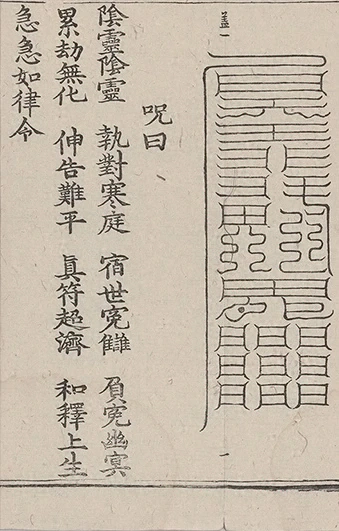 盖一
一
呪曰
陰靈陰靈 執對寒庭 宿世寃讎 負寃幽冥
累劫無化 伸告難平 眞符超濟 和釋上生
急急如律令